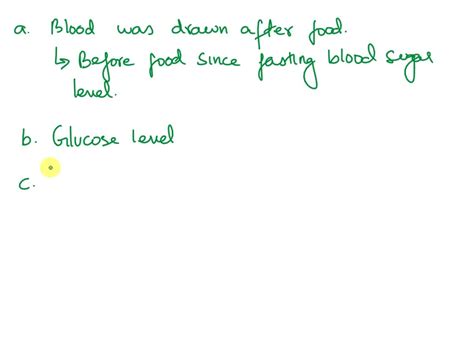 a. Blood was drawn after food.
↳ Before food since fasting blood sugar
level.
b. Glucose level
c.